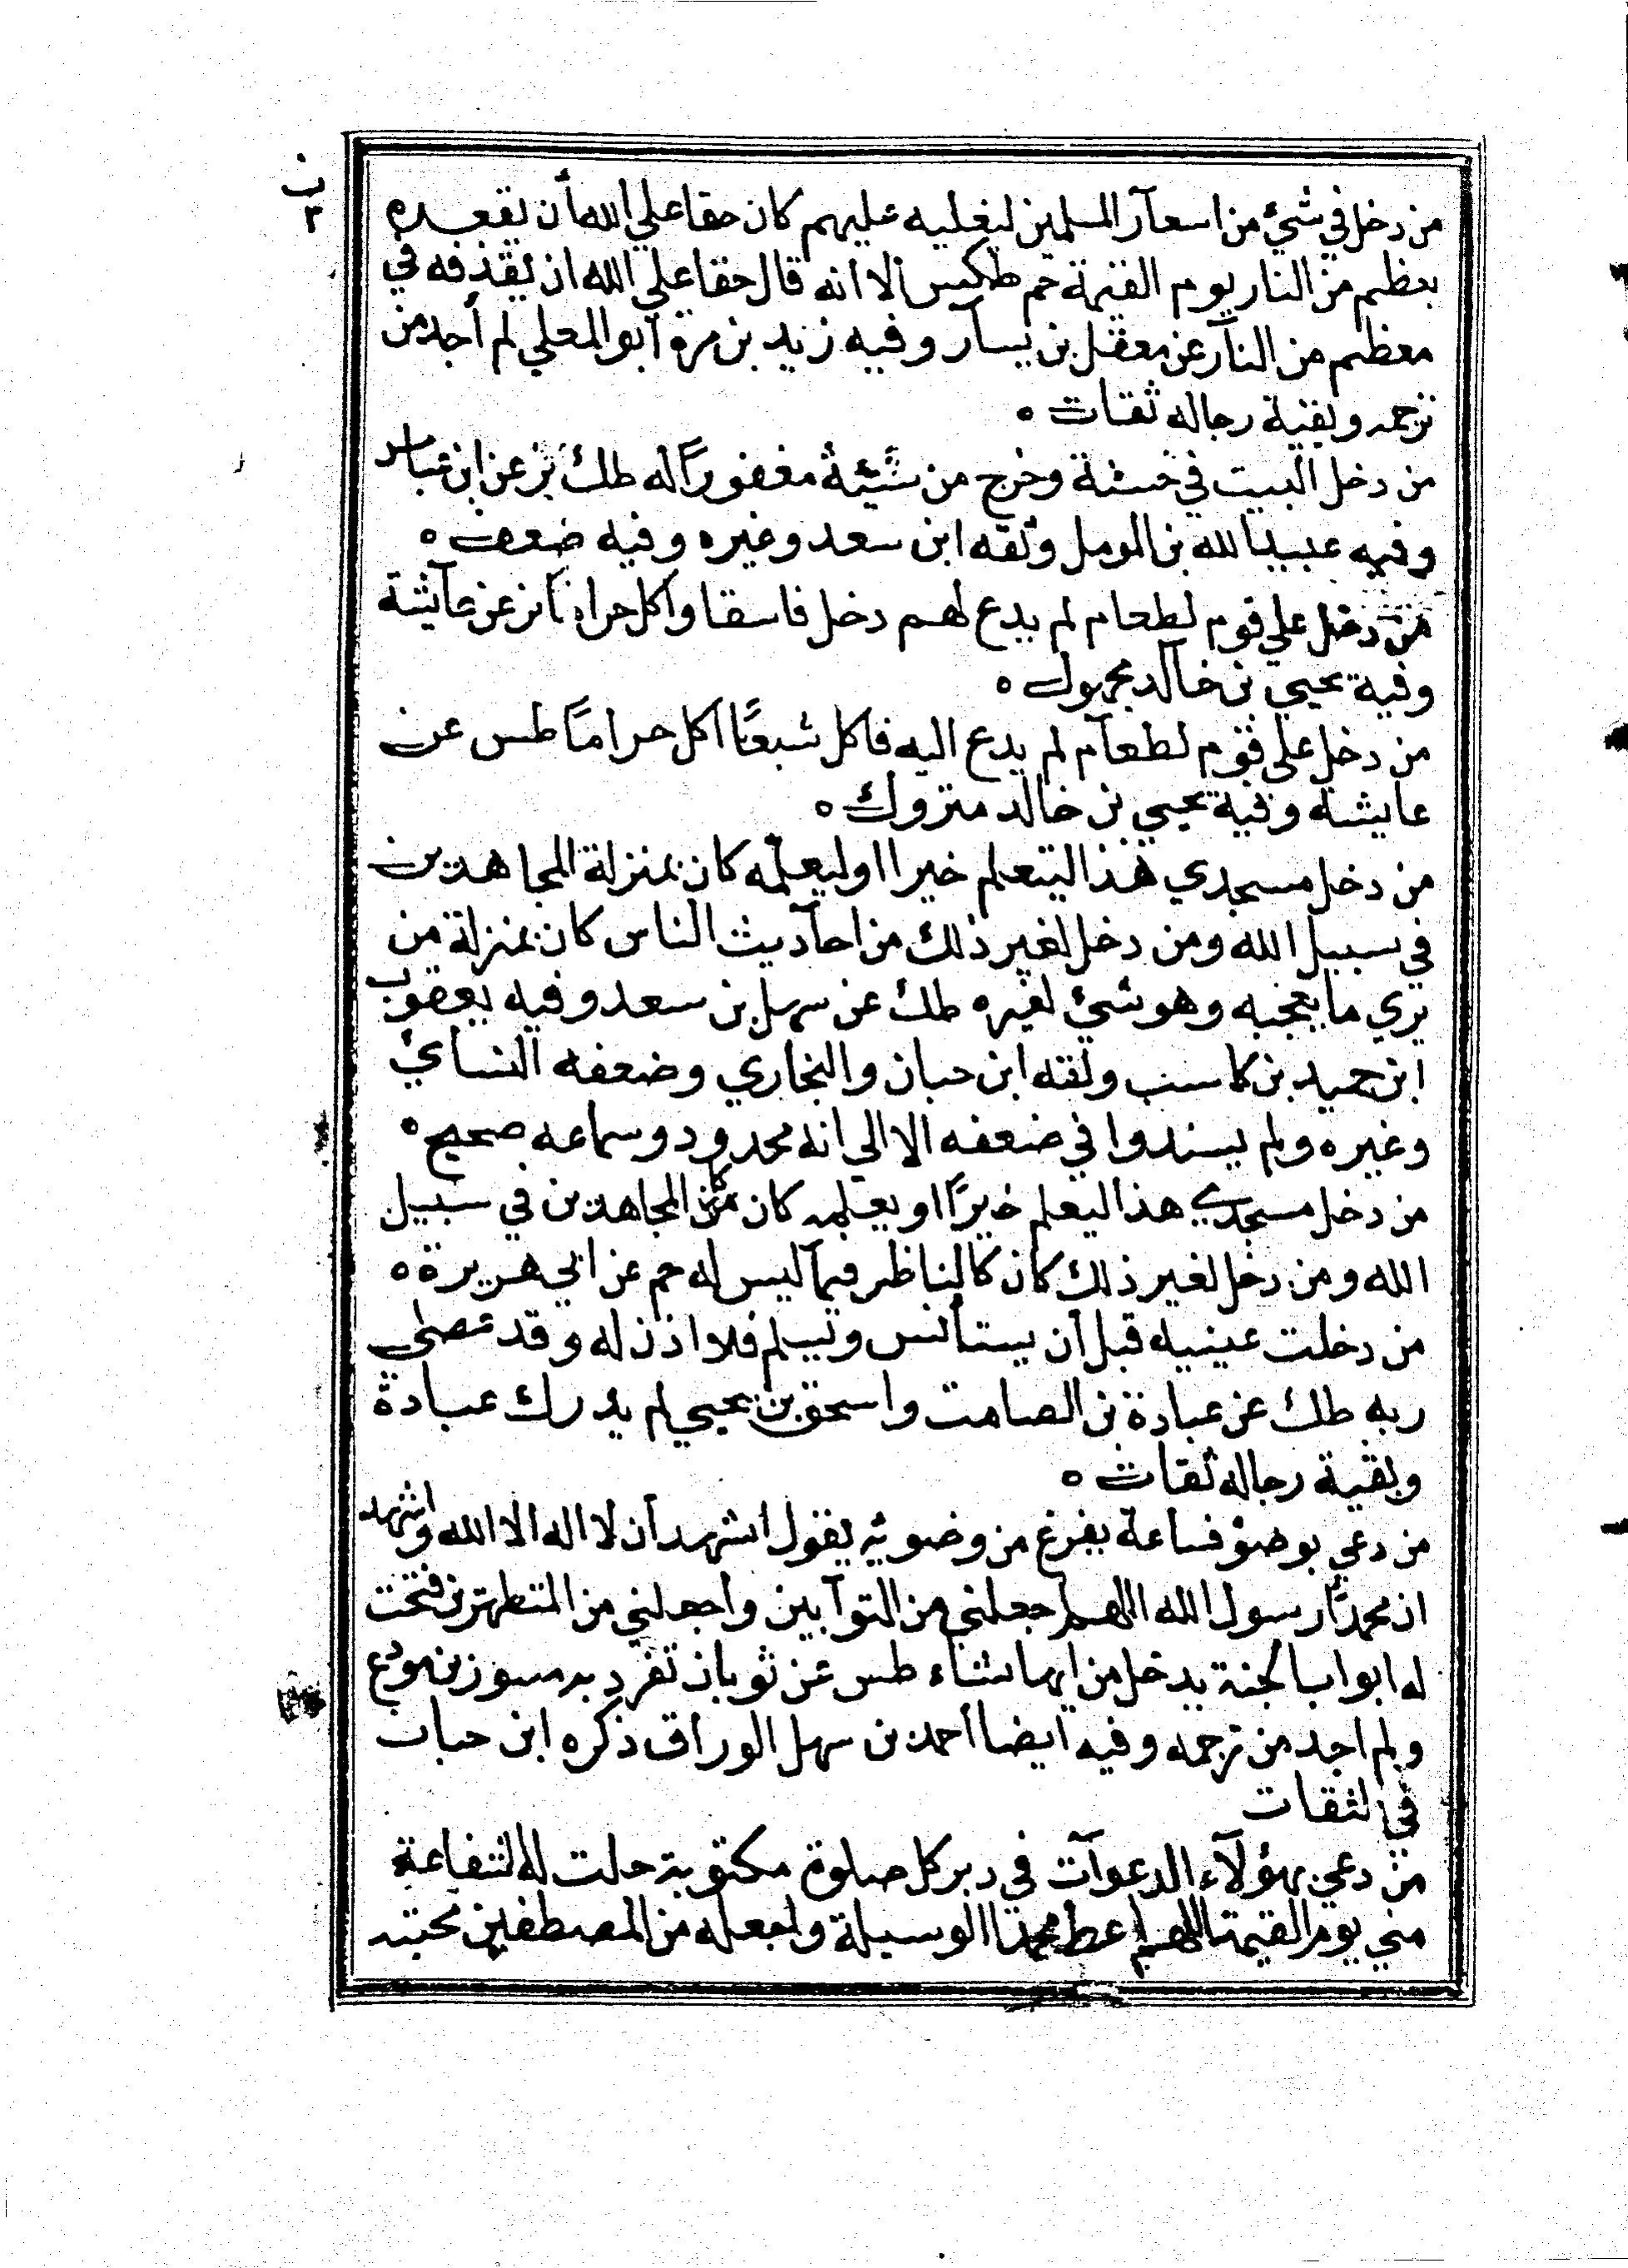 ب
٣
من دخل في شيء من اسعار المسلمين ليغليه عليهم كان حقا علي الله أن يقعده
بعظم من النار يوم القيمة حم طكبس الا انه قال حقا علي الله ان يقذفه في
معظم من النار عن معقل بن يسار وفيه زيد بن مرة ابو المعلي لم أجد من
ترجمه وبقية رجاله ثقات ه
من دخل البيت في حسنة وخرج من سيئة مغفورا له طك بز عن ابن عباس
وفيه عبد الله بن المومل وثقه ابن سعد وغيره وفيه ضعف ه
من دخل علي قوم لطعام لم يدع لهم دخل فاسقا واكل حراما بز عن عائشة
وفية يحيي بن خالد مجهول ه
من دخل علي قوم لطعام لم يدع اليه فاكل شبعًا اكل حرامًا طس عن
عايشة وفية يحيي بن خالد متروك ه
من دخل مسجدي هذا ليتعلم خيرا اوليعلمه كان بمنزلة المجاهدين
في سبيل الله ومن دخل لغير ذلك من احاديث الناس كان بمنزلة من
يري ما يعجبه وهو شيئ لغيره طك عن سهل بن سعد وفيه يعقوب
ابن حميد بن كاسب وثقه ابن حبان والبخاري وضعفه النسائي
وغيره ولم يسندوا في ضعفه الا الي انه محدود وسماعه صحيح ه
من دخل مسجدي هذا ليعلم خيرًا او يعلمه كان من المجاهدين في سبيل
الله ومن دخل لغير ذلك كان كالناظر فيما ليس له حم عن ابي هريرة ه
من دخلت عينيه قبل أن يستأنس ويسلم فلا اذن له وقد عصي
ربه طك عن عبادة بن الصامت واسحق بن يحيي لم يدرك عبادة
وبقية رجاله ثقات ه
من دعي بوضؤ فساعة يفرغ من وضويه يقول اشهد أن لا اله الا الله واشهد
ان محمدًا رسول الله اللهم اجعلني من التوابين واجعلني من المتطهرين فتحت
له ابواب الجنة يدخل من ايها شاء طس عن ثوبان تفرد به مسور بن مودع
ولم اجد من ترجمه وفيه ايضا احمد بن سهل الوراق ذكره ابن حبان
في الثقات
من دعي بهؤلاء الدعوات في دبر كل صلوة مكتوبة حلت له الشفاعة
مني يوم القيمة اللهم اعط محمدا الوسيلة واجعله من المصطفين محبته